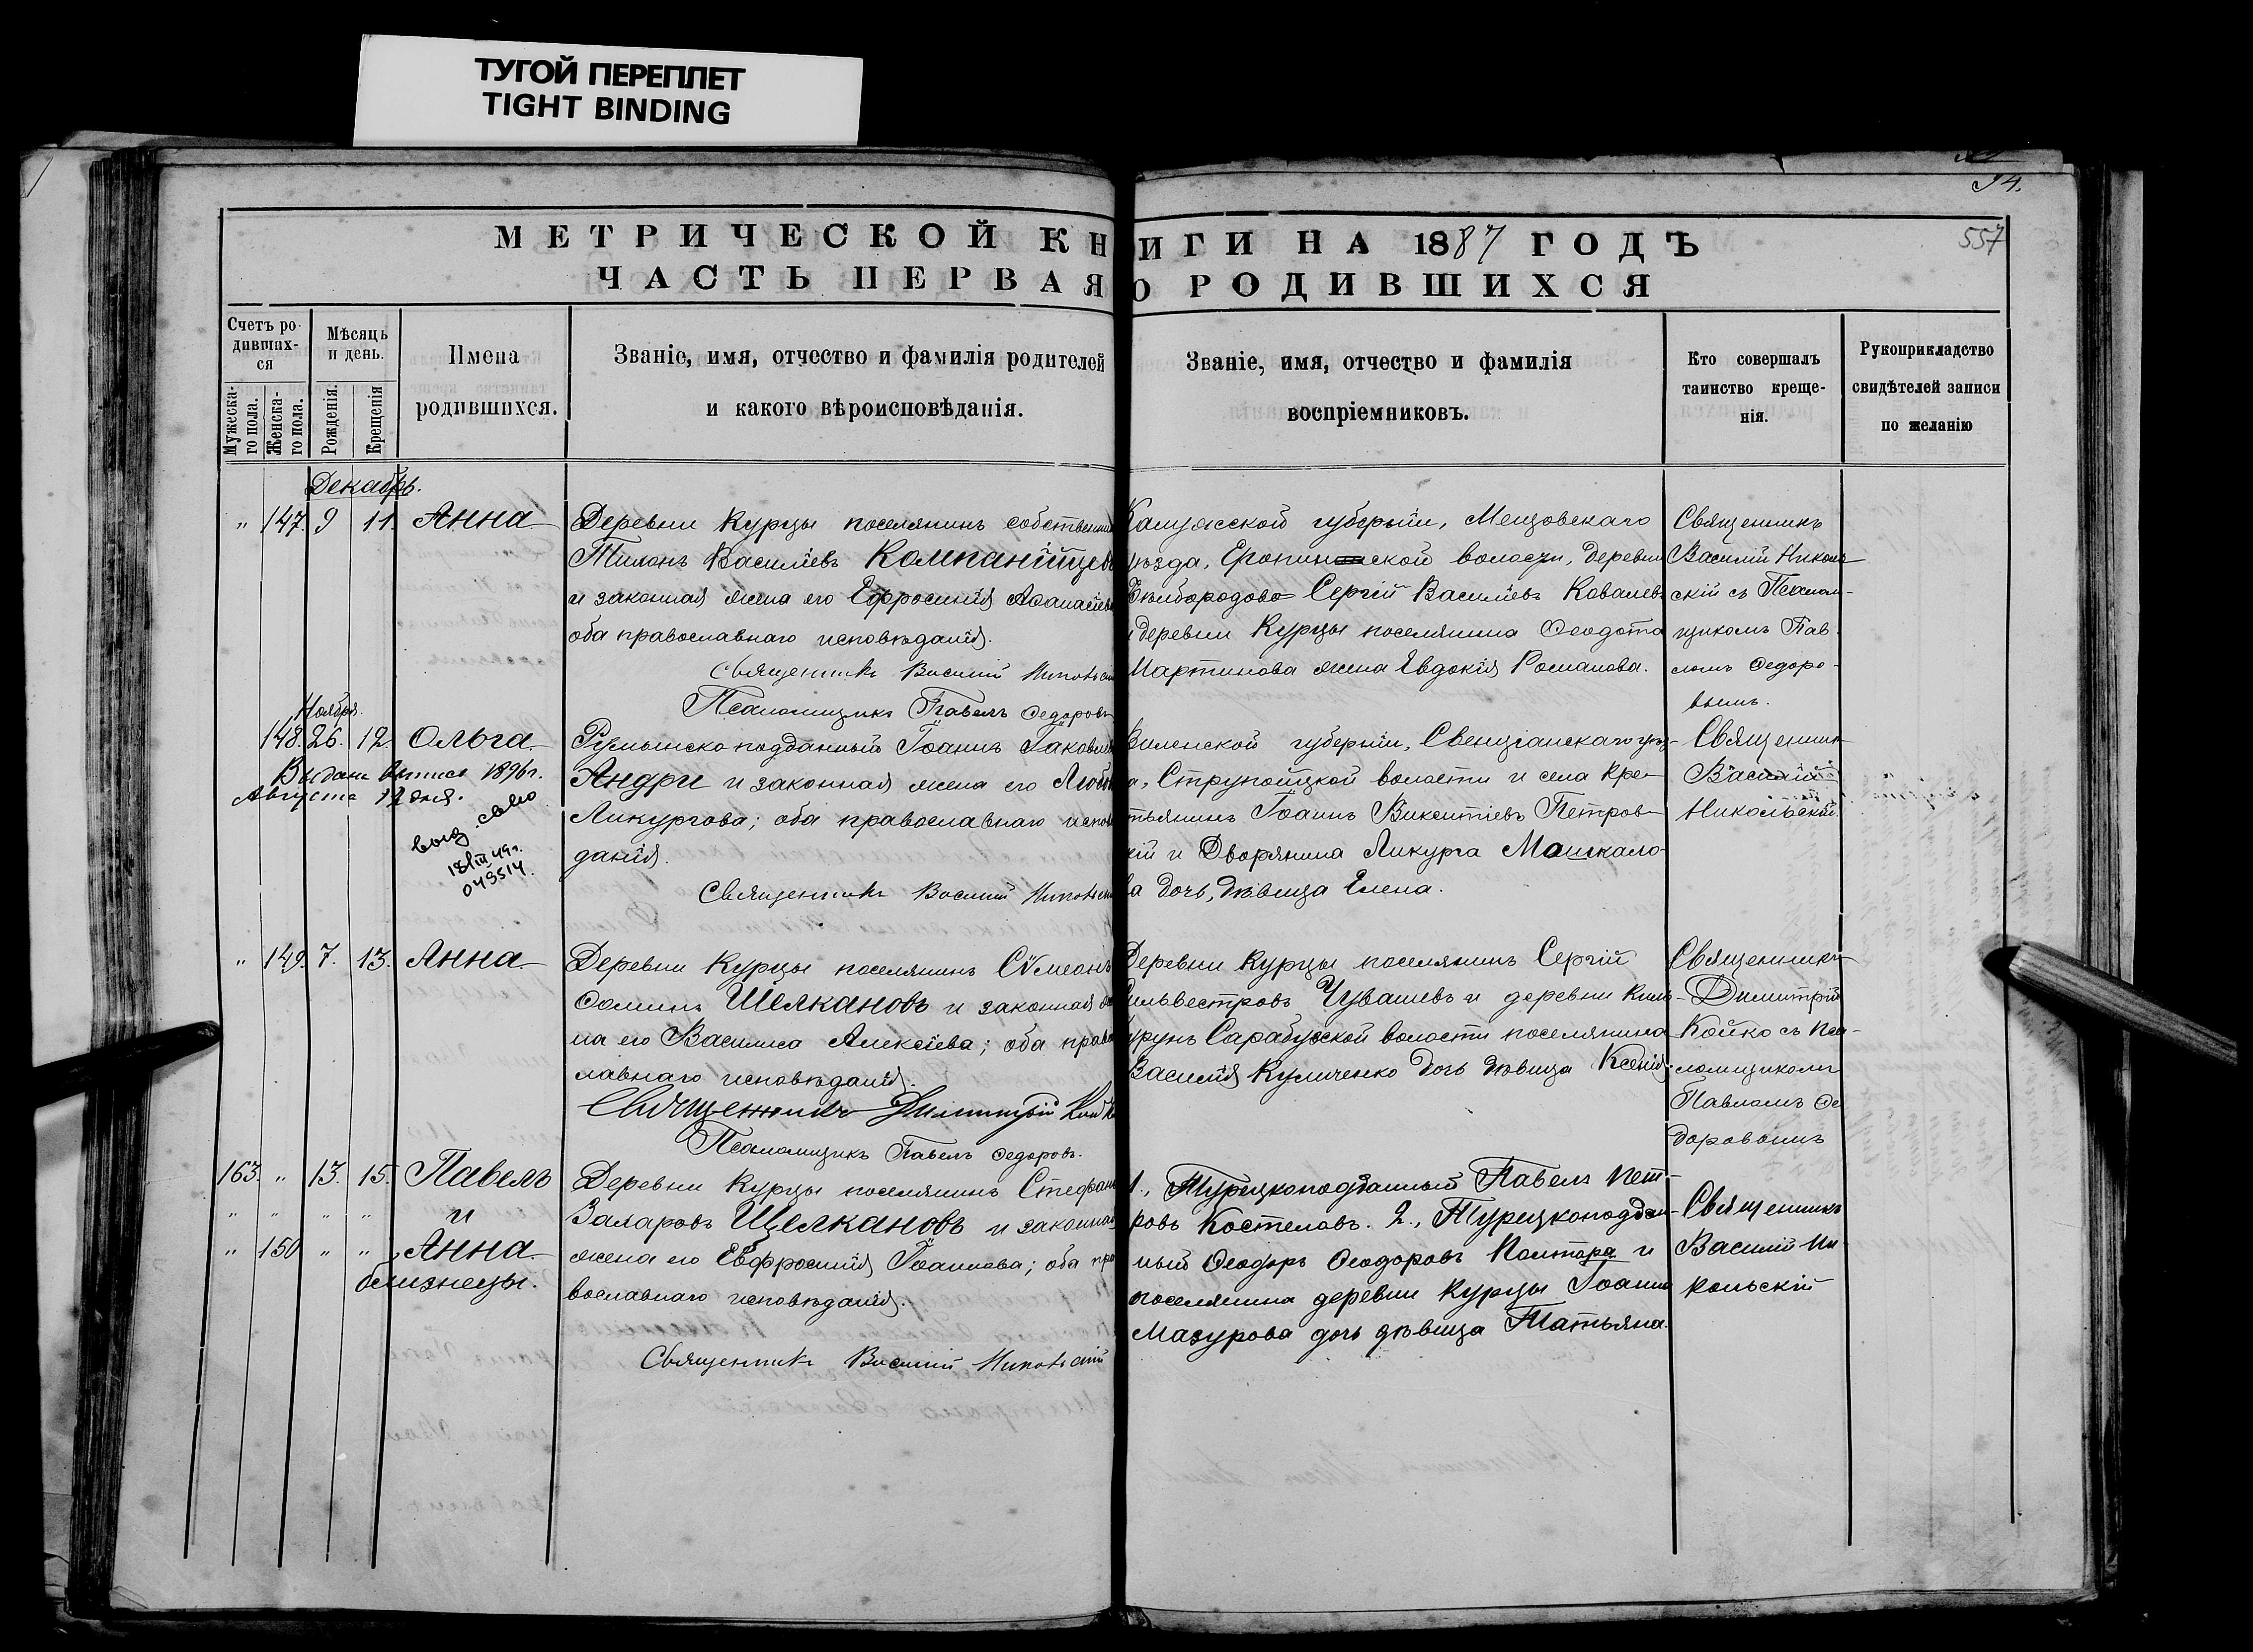 ТУГОЙ ПЕРЕПЛЕТ
TIGHT BINDING
94.
557
МЕТРИЧЕСКОЙ КНИГИ НА 1887 ГОДЪ
ЧАСТЬ ПЕРВАЯ О РОДИВШИХСЯ
Счетъ ро-
дившах-
ся
Мужеска-
го пола.
Женска-
го пола.
Мѣсяць
и день.
Рожденія.
Крещенія
Имена
родившихся.
Званіе, имя, отчество и фамилія родителей
и какого вѣроисповѣданія.
Званіе, имя, отчество и фамилія
воспріемниковъ.
Кто совершалъ
таинство креще-
нія.
Рукоприкладство
свидѣтелей записи
по желанію
Декабрь.
" 147. 9 11. Анна
Деревни Курцы поселянинъ собственни
Тихонъ Васильевъ Компанійцевъ
и законная жена его Ефросинія Аѳанасіев
оба православнаго исповѣданія.
Священникъ Василій Никольскій
Псаломщикъ Павелъ Ѳедоровъ
Калужской губерніи, Мещовскаго
уѣзда, волости, деревни
Сергій Васильевъ Ковалевъ
и деревни Курцы поселянина Ѳеодота
Мартинова жена Евдокія Романова.
Священникъ
Василій Николь-
скій съ Псалом-
щикомъ Пав-
ломъ Ѳедоро-
вымъ.
Ноября.
148. 26. 12. Ольга
Выдана выпись 1896 г.
Августа 12 дня.
выд. св-во
18/III 49 г.
049514.
Румынскоподданный Іоаннъ Іаковлев
Андри и законная жена его Любов
Ликургова; оба православнаго испов
данія.
Священникъ Василій Никольскій
Виленской губерніи, Свенціанскаго уѣз-
а, Струнойцкой волости и села кре-
тьянинъ Іоаннъ Викентіевъ Петров-
кій и Дворянина Ликурга Маикало-
ва дочь, дѣвица Елена.
Священникъ
Василій
Никольскій.
" 149. 7. 13. Анна
Деревни Курцы поселянинъ Сѵмеонъ
Ѳоминъ Шелкановъ и законная же
на его Василиса Алексіева; оба право
лавнаго исповѣданія.
Священникъ Димитрій Койко
Псаломщикъ Павелъ Ѳедоровъ.
Деревни Курцы поселянинъ Сергій
Сильвестровъ Чувашевъ и деревни Киль-
урунъ Сарабузской волости поселянина
Василія Куличенко дочь дѣвица Ксенія.
Священникъ
Димитрій
Койко съ Пса-
ломщикомъ
Павломъ Ѳе
доровымъ
163. " 13. 15. Павелъ
" " " " и
" 150 " " Анна
близнецы.
Деревни Курцы поселянинъ Стефанъ
Захаровъ Щелкановъ и законная
жена его Евфросинія Іоаннова; оба пра
вославнаго исповѣданія.
Священникъ Василій Никольскій
1., Турецкоподданный Павелъ Пет-
ровъ Костелавъ. 2., Турецкоподдан-
ный Ѳеодоръ Ѳеодоровъ Полтора и
поселянина деревни Курцы Іоанна
Мазурова дочь дѣвица Татьяна.
Священникъ
Василій Ни-
кольскій